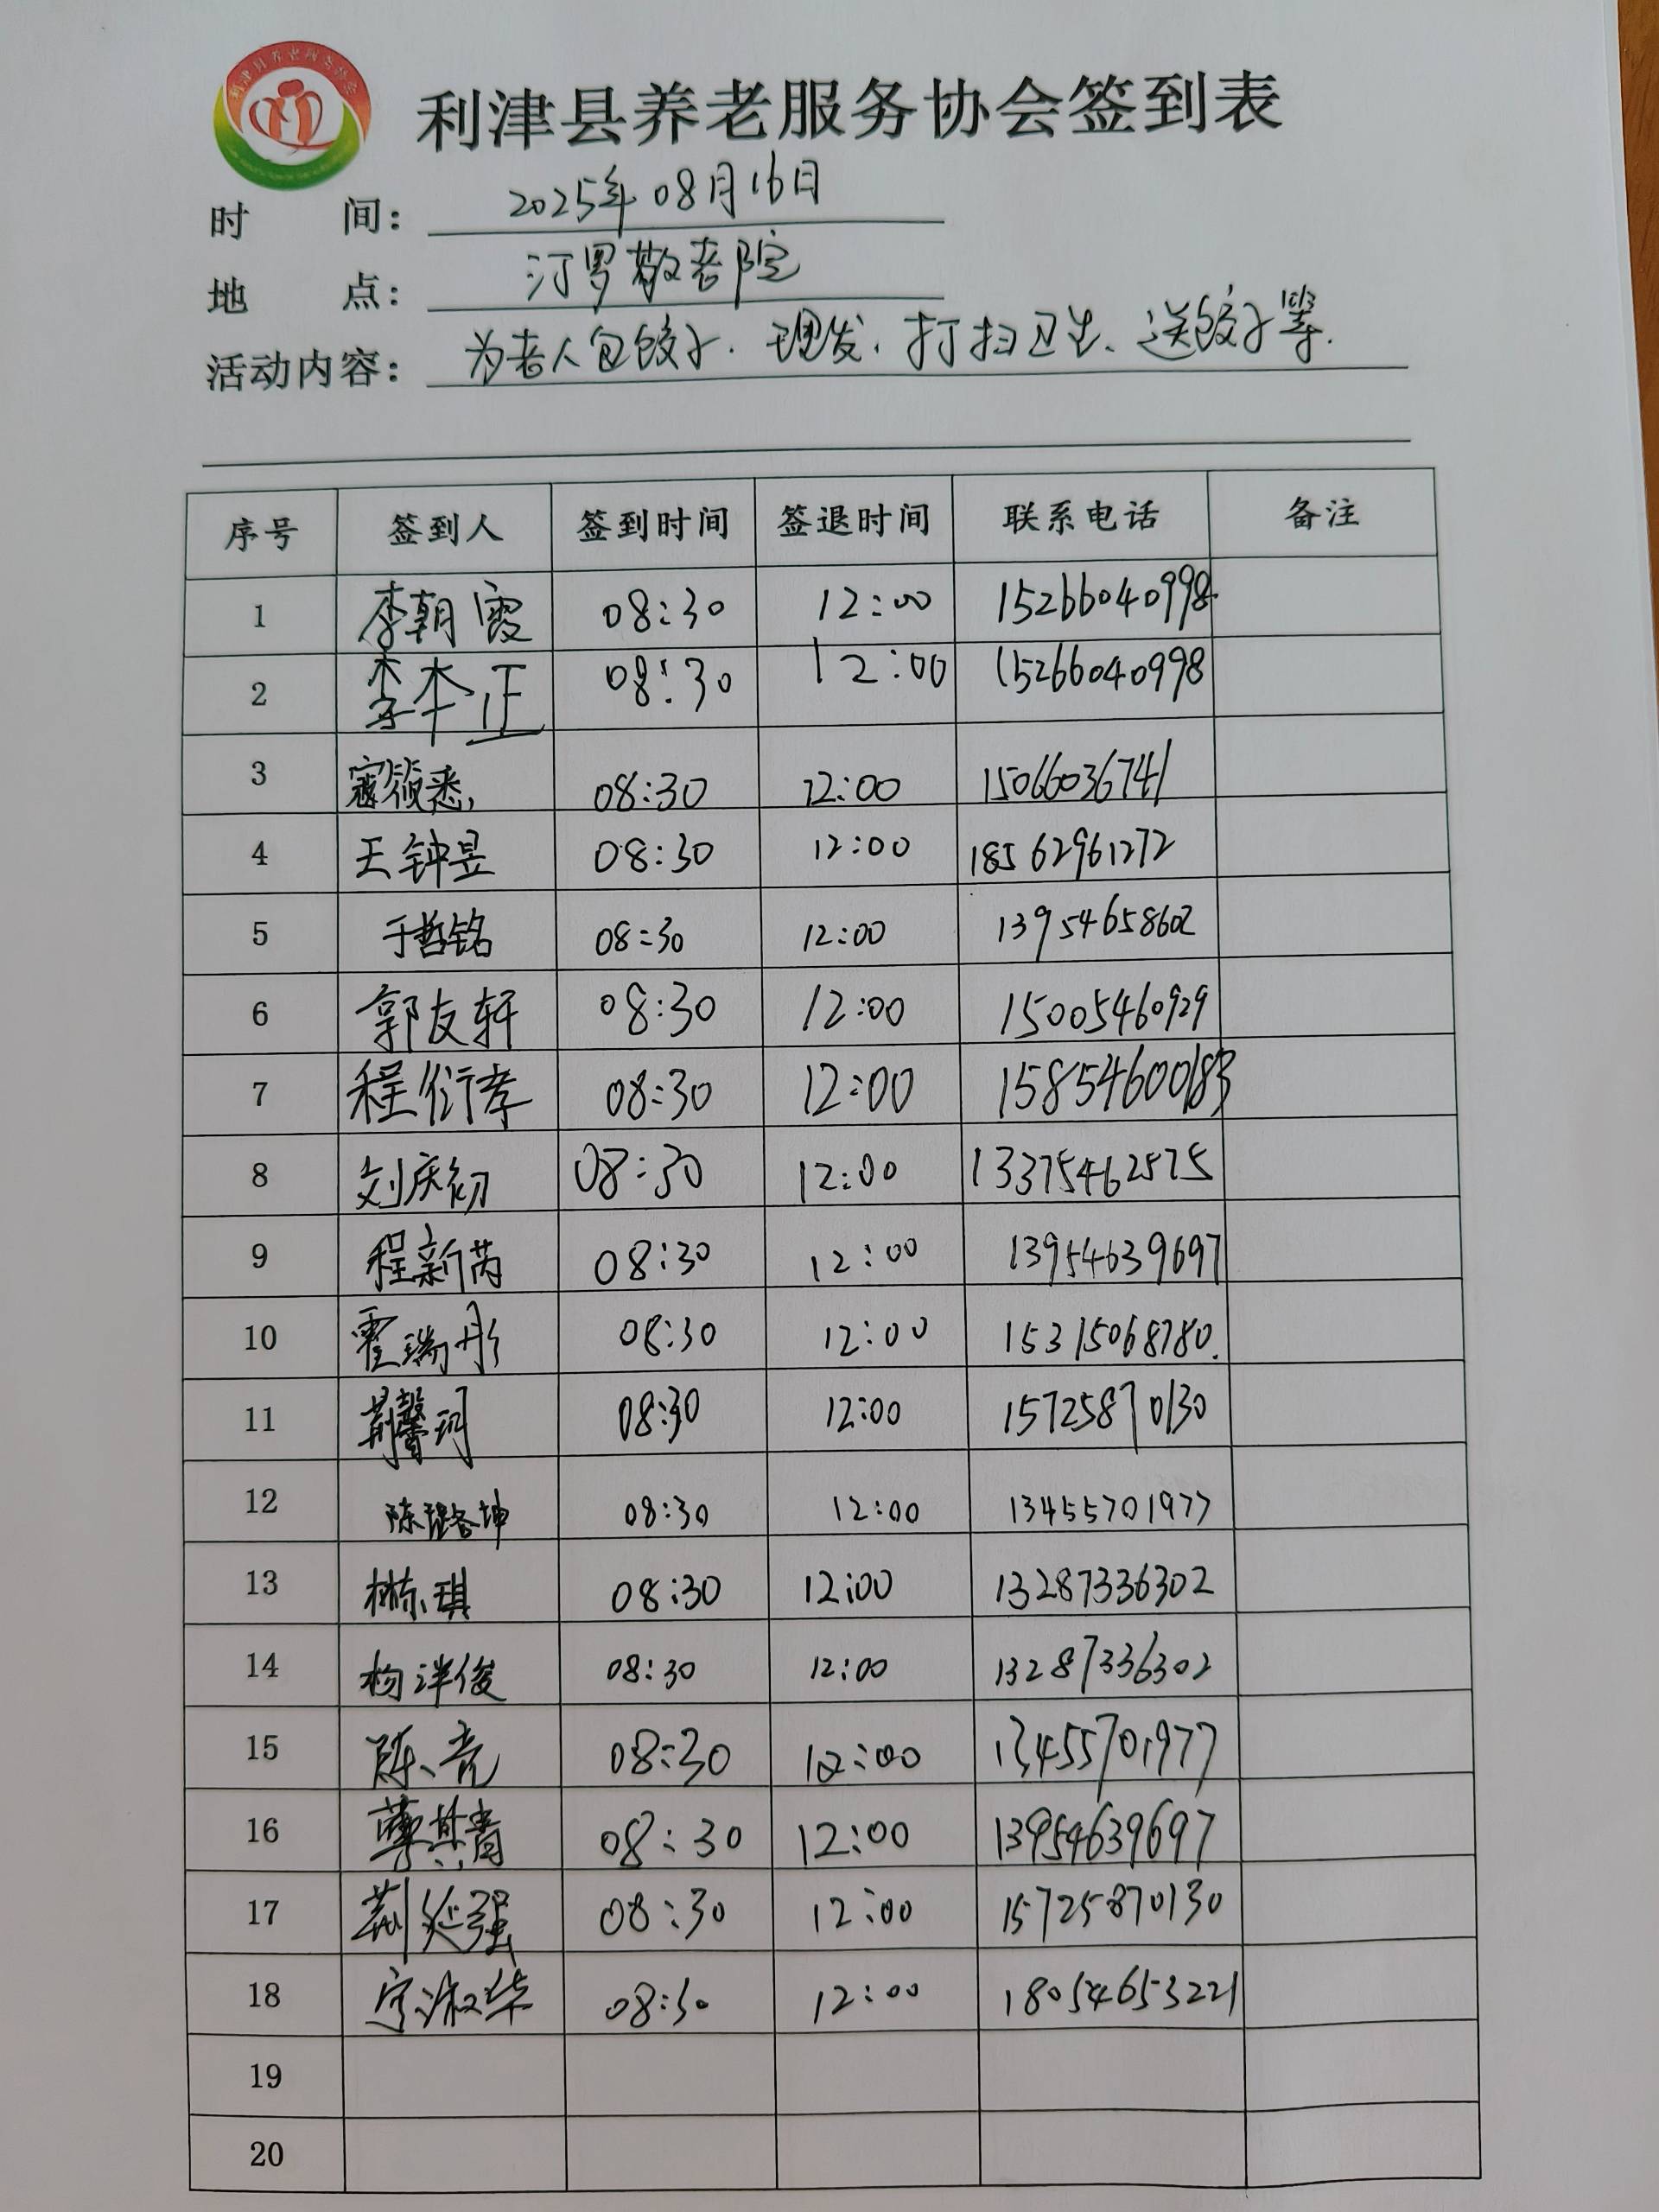 利津县养老服务协会签到表
时 间: 2025年08月16日
地 点: 汀罗敬老院
活动内容: 为老人包饺子、理发、打扫卫生、送饺子等.
序号 签到人 签到时间 签退时间 联系电话 备注
1 李朝霞 08:30 12:00 15266040998
2 李本正 08:30 12:00 15266040998
3 寇筱悉 08:30 12:00 15066036741
4 王钟昱 08:30 12:00 18562961272
5 于哲铭 08:30 12:00 13954658602
6 郭友轩 08:30 12:00 15005460929
7 程衍孝 08:30 12:00 15854600183
8 刘庆初 08:30 12:00 13375462575
9 程新芮 08:30 12:00 13954639697
10 霍瑞彤 08:30 12:00 15315068780.
11 荆馨珂 08:30 12:00 15725870130
12 陈璐坤 08:30 12:00 13455701977
13 琪 08:30 12:00 13287336302
14 杨洋俊 08:30 12:00 13287336302
15 陈亮 08:30 12:00 13455701977
16 青 08:30 12:00 13954639697
17 荆延强 08:30 12:00 15725870130
18 宁淑华 08:30 12:00 18054653221
19
20